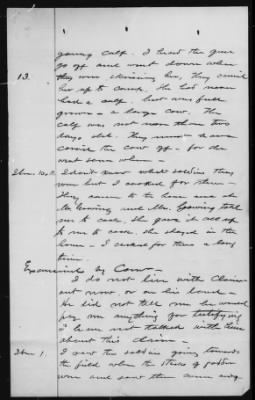 young calf. I heard the guns
go off and went down when
13. they were skinning her, they carried
her up to camp. She had never
had a calf but was full
grown - a large cow. The
calf was not more than two
days old. They must have
carried the cow off - for she
went soon when -
Item 10, 11. I don't know which soldiers they
were but I cooked for them -
They came to the house and
Mr. and Mrs. told
me to cook. She gave it all up
to me to cook. she stayed in the
house - I cooked for them a long
time.
Examined by Com -
I do not live with Claim-
ant now or on his land -
He did not tell me he would
pay me anything for testifying
I have not talked with them
about this claim -
Item 1. I saw the soldiers going towards
the field when the stacks of fodder
were and saw them away